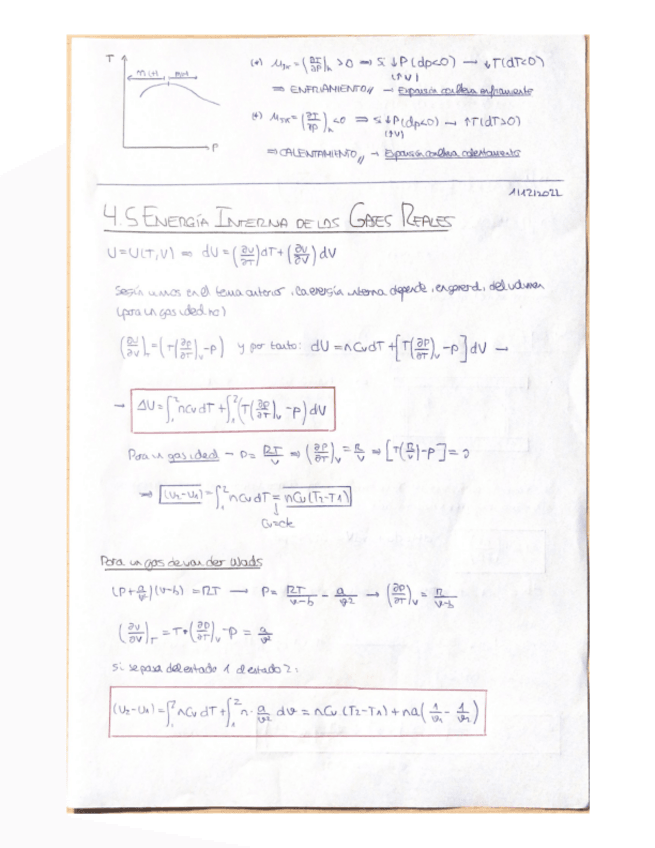 T
M(-) M(+)
P
(*) μJK = (∂T/∂P)h > 0 ⇒ Si ↓P (dp<0) → ↓T (dT<0)
(↑V)
⇒ ENFRIAMIENTO // → Expansión conlleva enfriamiento
(*) μJK = (∂T/∂P)h < 0 ⇒ Si ↓P (dp<0) → ↑T (dT>0)
(↑V)
⇒ CALENTAMIENTO // → Expansión conlleva calentamiento
1/12/2022
4.5 ENERGÍA INTERNA DE LOS GASES REALES
U = U(T,V) ⇒ dU = (∂U/∂T)dT + (∂U/∂V)dV
Según vimos en el tema anterior, la energía interna depende, en general, del volumen
(para un gas ideal no)
(∂U/∂V)T = (T(∂P/∂T)V - P) y por tanto: dU = nCvdT + [T(∂P/∂T)V - P]dV →
→ ΔU = ∫₁² nCvdT + ∫₁² (T(∂P/∂T)V - P)dV
Para un gas ideal → P = RT/V ⇒ (∂P/∂T)V = R/V ⇒ [T(R/V) - P] = 0
⇒ (U2-U1) = ∫₁² nCvdT = nCv(T2-T1)
↓
Cv=ctte
Para un gas de van der Waals
(P + a/v)(v-b) = RT → P = RT/v-b - a/v² → (∂P/∂T)V = R/v-b
(∂U/∂V)T = T·(∂P/∂T)V - P = a/v²
Si se pasa del estado 1 al estado 2:
(U2-U1) = ∫₁² nCvdT + ∫₁² n·a/v² dv = nCv(T2-T1) + na(1/v1 - 1/v1)